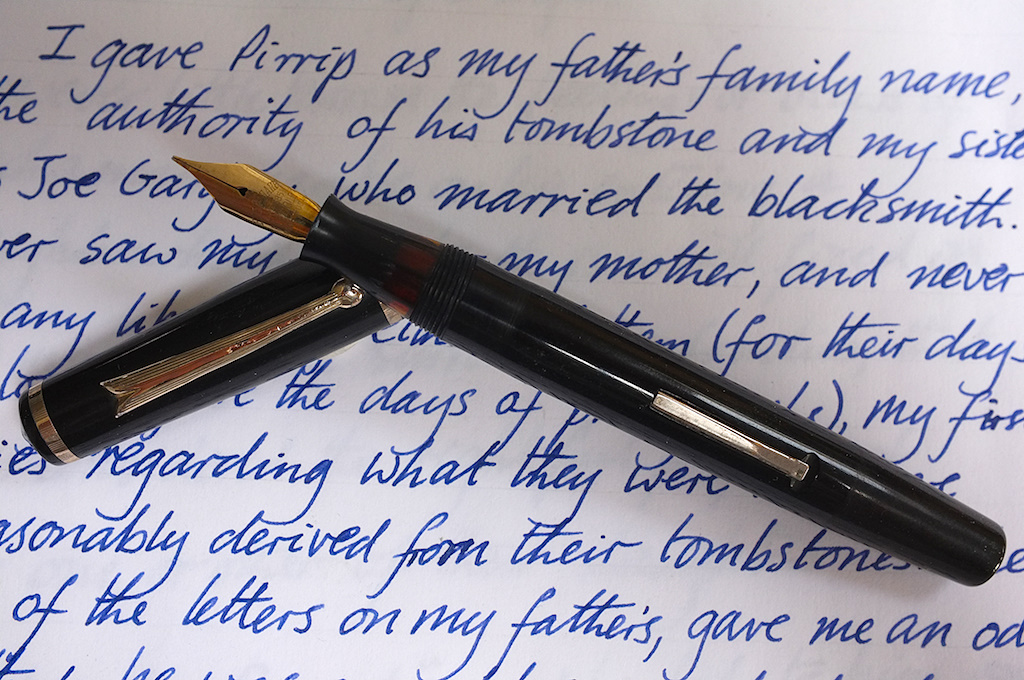 I gave Pirrip as my father's family name,
the authority of his tombstone and my siste
Joe Garg who married the blacksmith.
ver saw my my mother, and never
any lik them (for their day-
the days of p ds), my firs
ies regarding what they were
asonably derived from their tombstones.
of the letters on my father's, gave me an od